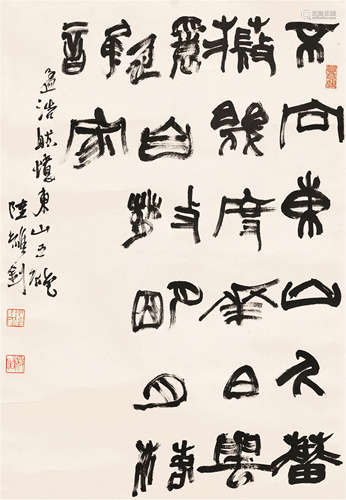 不向東山久薔
薇幾度華白雲
還自散明月落
誰家
孟浩然憶東山五絕
陸維釗